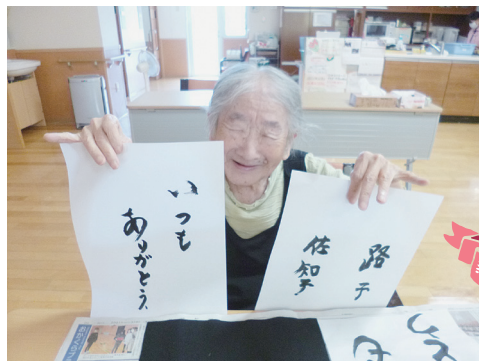 いつも
ありがとう、
路子
佐知子